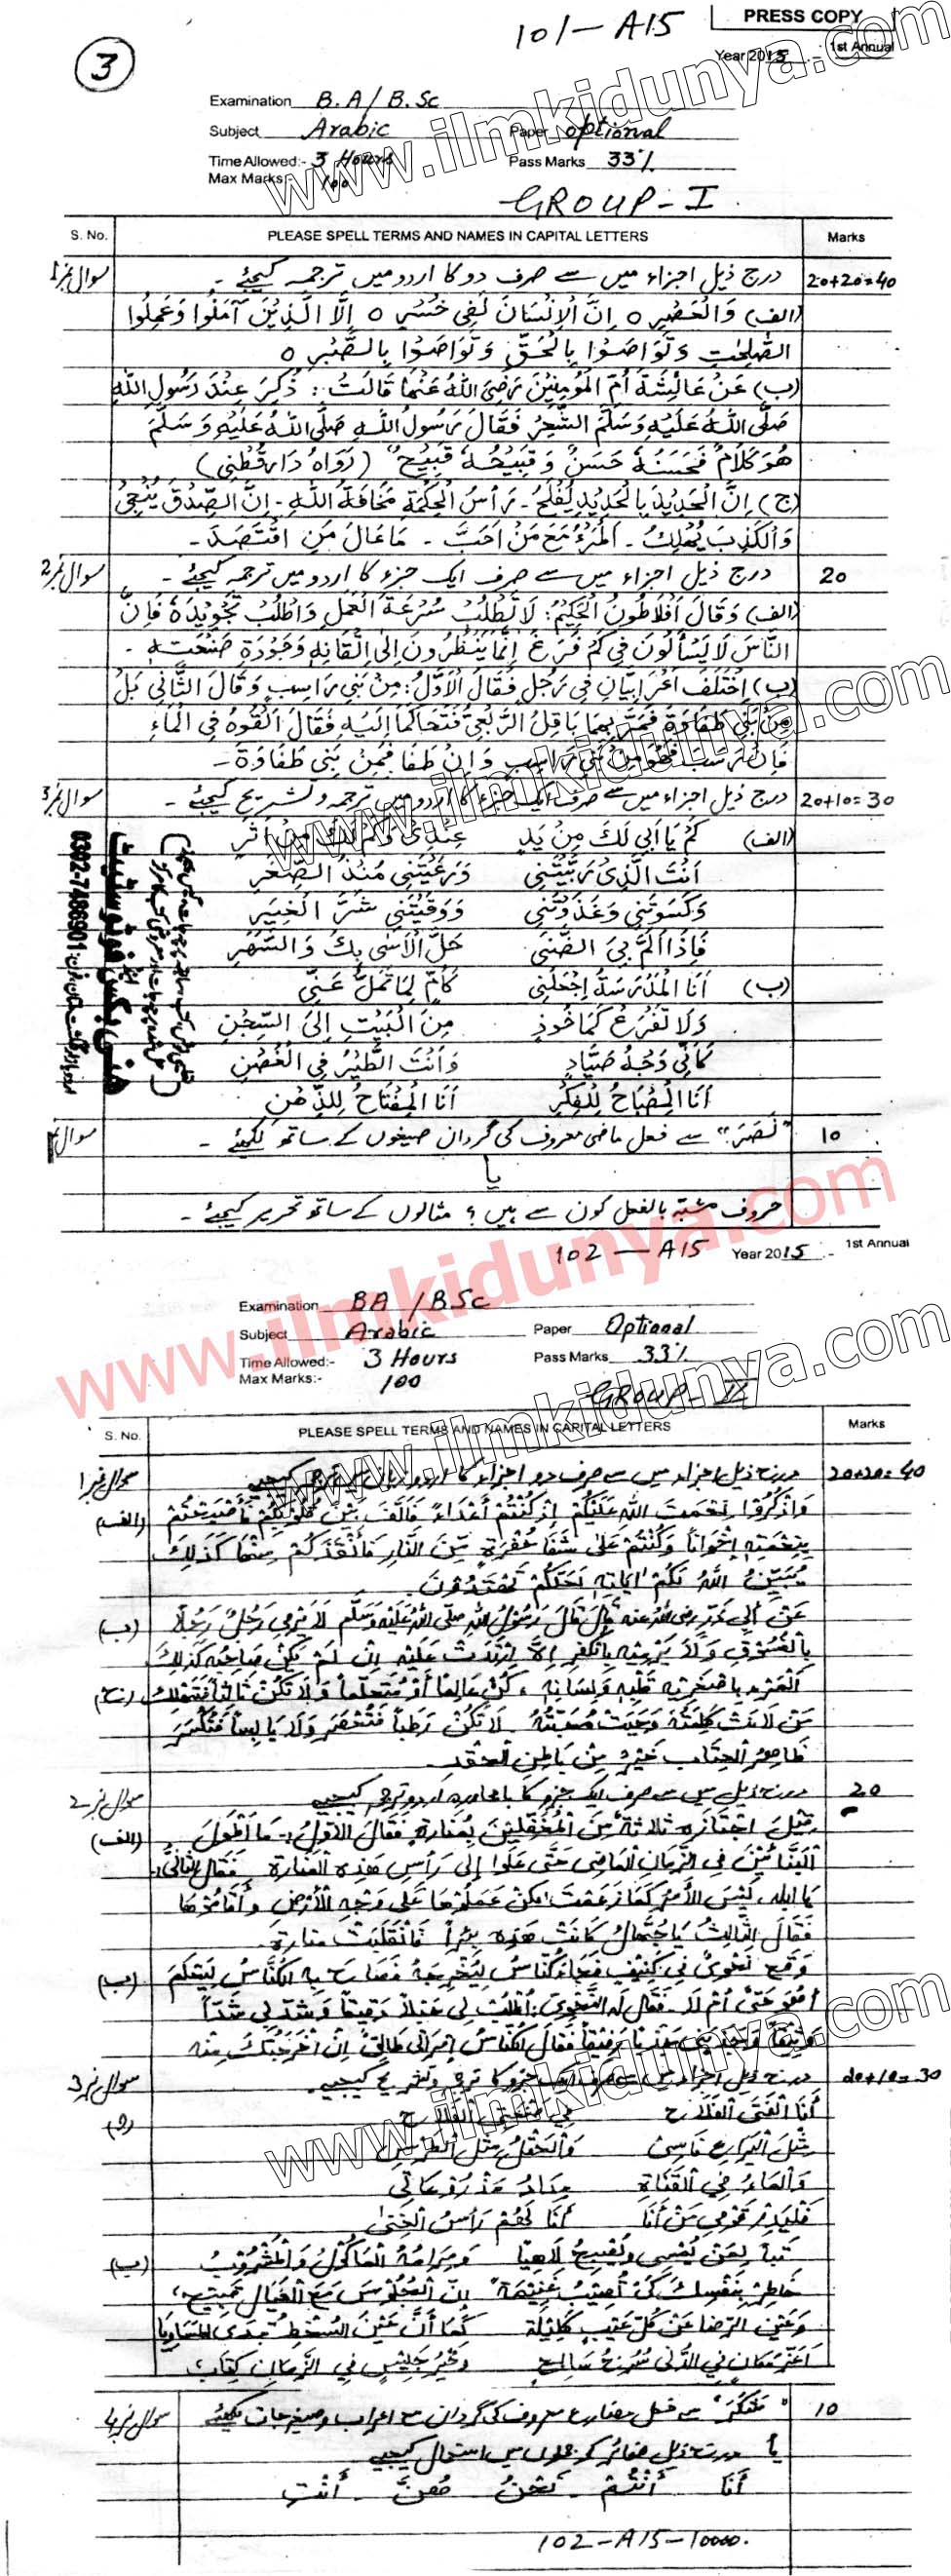 101-A15
PRESS COPY
3
Year 2015 1st Annual
Examination B.A/B.Sc
Subject Arabic Paper optional
Time Allowed:- 3 Hours Pass Marks 33%
Max Marks:- 100
GROUP-I
S. No. PLEASE SPELL TERMS AND NAMES IN CAPITAL LETTERS Marks
سوال نمبر1 درج ذیل اجزاء میں سے صرف دو کا اردو میں ترجمہ کیجئے - 20+20=40
(الف) وَالْعَصْرِ ○ اِنَّ الْاِنْسَانَ لَفِی خُسْرٍ ○ اِلَّا الَّذِیْنَ آمَنُوْا وَعَمِلُوا
الصّٰلِحٰتِ وَتَوَاصَوْا بِالْحَقِّ وَتَوَاصَوْا بِالصَّبْرِ ○
(ب) عَنْ عَائِشَةَ اُمِّ الْمُؤْمِنِیْنَ رَضِیَ اللّٰهُ عَنْهَا قَالَتْ: ذُکِرَ عِنْدَ رَسُوْلِ اللّٰهِ
صَلَّی اللّٰهُ عَلَیْهِ وَسَلَّمَ الشِّعْرُ فَقَالَ رَسُوْلُ اللّٰهِ صَلَّی اللّٰهُ عَلَیْهِ وَسَلَّمَ
هُوَ کَلَامٌ فَحَسَنُهٗ حَسَنٌ وَقَبِیْحُهٗ قَبِیْحٌ (رَوَاهُ دَارَقُطْنِی)
(ج) اِنَّ الْحَدِیْدَ بِالْحَدِیْدِ یُفْلَحُ - رَأْسُ الْحِکْمَةِ مَخَافَةُ اللّٰهِ - اِنَّ الصِّدْقَ یُنْجِیْ
وَالْکَذِبَ یُهْلِكُ - اَلْمَرْءُ مَعَ مَنْ اَحَبَّ - مَا عَالَ مَنِ اقْتَصَدَ -
سوال نمبر2 درج ذیل اجزاء میں سے صرف ایک جزء کا اردو میں ترجمہ کیجئے - 20
(الف) وَقَالَ اَفْلَاطُوْنُ الْحَکِیْمُ: لَا تَطْلُبْ سُرْعَةَ الْعَمَلِ وَاطْلُبْ تَجْوِیْدَهٗ فَاِنَّ
النَّاسَ لَا یَسْأَلُوْنَ فِی کَمْ فَرَغَ اِنَّمَا یَنْظُرُوْنَ اِلٰی اِتْقَانِهٖ وَجُوْدَةِ صَنْعَتِهٖ -
(ب) اِخْتَلَفَ اَعْرَابِیَّانِ فِی رَجُلٍ فَقَالَ الْاَوَّلُ: مِنْ بَنِی رَاسِبٍ وَقَالَ الثَّانِی بَلْ
مِنْ بَنِی طُفَاوَةَ فَمَرَّ بِهِمَا بَاقِلُ الرَّبْعِیُّ فَتَحَاکَمَا اِلَیْهِ فَقَالَ اَلْقُوْهُ فِی الْمَاءِ
فَاِنْ رَسَبَ فَهُوَ مِنْ بَنِی رَاسِبٍ وَاِنْ طَفَا فَمِنْ بَنِی طُفَاوَةَ -
سوال نمبر3 درج ذیل اجزاء میں سے صرف ایک جزء کا اردو میں ترجمہ و تشریح کیجئے - 20+10=30
(الف) کَمْ یَا اَبِی لَكَ مِنْ یَدٍ عِنْدِیْ وَکَمْ لَكَ مِنْ اَثَرٍ
اَنْتَ الَّذِیْ رَبَّیْتَنِی وَرَعَیْتَنِی مُنْذُ الصِّغَرِ
وَکَسَوْتَنِی وَغَذَوْتَنِی وَوَقَیْتَنِی شَرَّ الْغِیَرِ
فَاِذَا اَلَمَّ بِیَ الضَّنٰی حَلَّ الْاَسٰی بِكَ وَالسَّهَرُ
(ب) اَنَا الْمَدْرَسَةُ اجْعَلْنِی کَاُمٍّ لَا تَمِلُّ عَنِّی
وَلَا تَفْزَعْ کَمَأْخُوْذٍ مِنَ الْبَیْتِ اِلَی السِّجْنِ
کَاَنِّی وَجْهُ صَیَّادٍ وَاَنْتَ الطَّیْرُ فِی الْغُصْنِ
اَنَا الْمِصْبَاحُ لِلْفِکْرِ اَنَا الْمِفْتَاحُ لِلذِّهْنِ
0302-7486901
سوال "نَصَرَ" سے فعل ماضی معروف کی گردان صیغوں کے ساتھ لکھئے - 10
یا
حروف مشبہ بالفعل کون سے ہیں؟ مثالوں کے ساتھ تحریر کیجئے -
102-A15 Year 2015 1st Annual
Examination BA/BSc
Subject Arabic Paper Optional
Time Allowed:- 3 Hours Pass Marks 33%
Max Marks:- 100
GROUP-II
S. No. PLEASE SPELL TERMS AND NAMES IN CAPITAL LETTERS Marks
سوال نمبر1 درج ذیل اجزاء میں سے صرف دو اجزاء کا اردو زبان میں ترجمہ کیجیے 20+20=40
(الف) وَاذْکُرُوْا نِعْمَتَ اللّٰهِ عَلَیْکُمْ اِذْ کُنْتُمْ أَعْدَاءً فَأَلَّفَ بَیْنَ قُلُوْبِکُمْ فَأَصْبَحْتُمْ
بِنِعْمَتِهٖ اِخْوَانًا وَکُنْتُمْ عَلٰی شَفَا حُفْرَةٍ مِّنَ النَّارِ فَأَنْقَذَکُمْ مِنْهَا کَذٰلِكَ
یُبَیِّنُ اللّٰهُ لَکُمْ اٰیَاتِهٖ لَعَلَّکُمْ تَهْتَدُوْنَ
(ب) عَنْ أَبِی ذَرٍّ رضی اللہ عنہ قَالَ قَالَ رَسُوْلُ اللّٰهِ صَلَّی اللّٰهُ عَلَیْهِ وَسَلَّمَ لَا یَرْمِی رَجُلٌ رَجُلًا
بِالْفُسُوْقِ وَلَا یَرْمِیْهِ بِالْکُفْرِ اِلَّا ارْتَدَّتْ عَلَیْهِ اِنْ لَمْ یَکُنْ صَاحِبُهٗ کَذٰلِكَ
(ج) اَلْمَرْءُ بِأَصْغَرَیْهِ قَلْبِهٖ وَلِسَانِهٖ، کُنْ عَالِمًا أَوْ مُتَعَلِّمًا وَلَا تَکُنْ ثَالِثًا فَتَهْلِكَ
مَنْ لَانَتْ کَلِمَتُهٗ وَجَبَتْ مَحَبَّتُهٗ لَا تَکُنْ رَطْبًا فَتُعْصَرَ وَلَا یَابِسًا فَتُکْسَرَ
ظَاهِرُ الْعِتَابِ خَیْرٌ مِّنْ بَاطِنِ الْحِقْدِ
سوال نمبر2 درج ذیل میں سے صرف ایک جزو کا بامحاورہ اردو ترجمہ کیجیے 20
(الف) قِیْلَ اجْتَازَ ثَلَاثَةٌ مِّنَ الْمُغَفَّلِیْنَ بِمَنَارَةٍ فَقَالَ الْاَوَّلُ: مَا أَطْوَلَ
الْبَنَّائِیْنَ فِی الزَّمَانِ الْمَاضِی حَتّٰی عَلَوْا اِلٰی رَأْسِ هٰذِهِ الْمَنَارَةِ فَقَالَ الثَّانِیُّ:
یَا أَبْلَهُ لَیْسَ الْأَمْرُ کَمَا زَعَمْتَ لٰکِنْ عَمِلُوْهَا عَلٰی وَجْهِ الْأَرْضِ وَأَقَامُوْهَا
فَقَالَ الثَّالِثُ یَا جُهَّالُ کَانَتْ هٰذِهِ بِئْرًا فَانْقَلَبَتْ مَنَارَةً
(ب) وَقَعَ نَحْوِیٌّ فِی کَنِیْفٍ فَجَاءَ کَنَّاسٌ لِیُخْرِجَهٗ فَصَاحَ بِهِ الْکَنَّاسُ لِیَعْلَمَ
أَهُوَ حَیٌّ أَمْ لَا فَقَالَ لَهُ النَّحْوِیُّ: اُطْلُبْ لِی حَبْلًا دَقِیْقًا وَشُدَّنِی شَدًّا
وَثِیْقًا وَاجْذِبْنِی جَذْبًا رَفِیْقًا فَقَالَ الْکَنَّاسُ اِمْرَأَتِی طَالِقٌ اِنْ أَخْرَجْتُكَ مِنْهُ
سوال نمبر3 درج ذیل اجزاء میں سے صرف ایک جزو کا ترجمہ و تشریح کیجیے 20+10=30
أَنَا الْفَتَی الْفَلَّاحُ
مِثْلَ الْیَرَاعِ فَأْسِی وَالْحَقْلُ مِثْلُ الطِّرْسِ
وَالْمَاءُ فِی الْقَنَاةِ مِدَادُ
فَلْیَدْرِ قَوْمِی مَنْ أَنَا أَنَا لَهُمْ رَأْسُ الْغِنٰی
(ب) تَبًّا لِمَنْ یُمْسِی وَیُصْبِحُ لَاهِیًا وَمَرَامُهُ الْمَأْکُوْلُ وَالْمَشْرُوْبُ
خَاطِرْ بِنَفْسِكَ کَیْ تُصِیْبَ غَنِیْمَةً اِنَّ الْجُلُوْسَ مَعَ الْعِیَالِ قَبِیْحٌ
وَعَیْنُ الرِّضَا عَنْ کُلِّ عَیْبٍ کَلِیْلَةٌ کَمَا أَنَّ عَیْنَ السُّخْطِ تُبْدِی الْمَسَاوِیَا
أَعَزُّ مَکَانٍ فِی الدُّنٰی سَرْجُ سَابِحٍ وَخَیْرُ جَلِیْسٍ فِی الزَّمَانِ کِتَابٌ
سوال نمبر4 سے فعل مضارع معروف کی گردان مع اعراب و صیغہ جات لکھیئے 10
یا درج ذیل ضمائر کو جملوں میں استعمال کیجیے
أَنَا أَنْتُمْ - نَحْنُ هُنَّ - أَنْتِ
102-A15-10000.
www.ilmkidunya.com
www.ilmkidunya.com
www.ilmkidunya.com
www.ilmkidunya.com
www.ilmkidunya.com